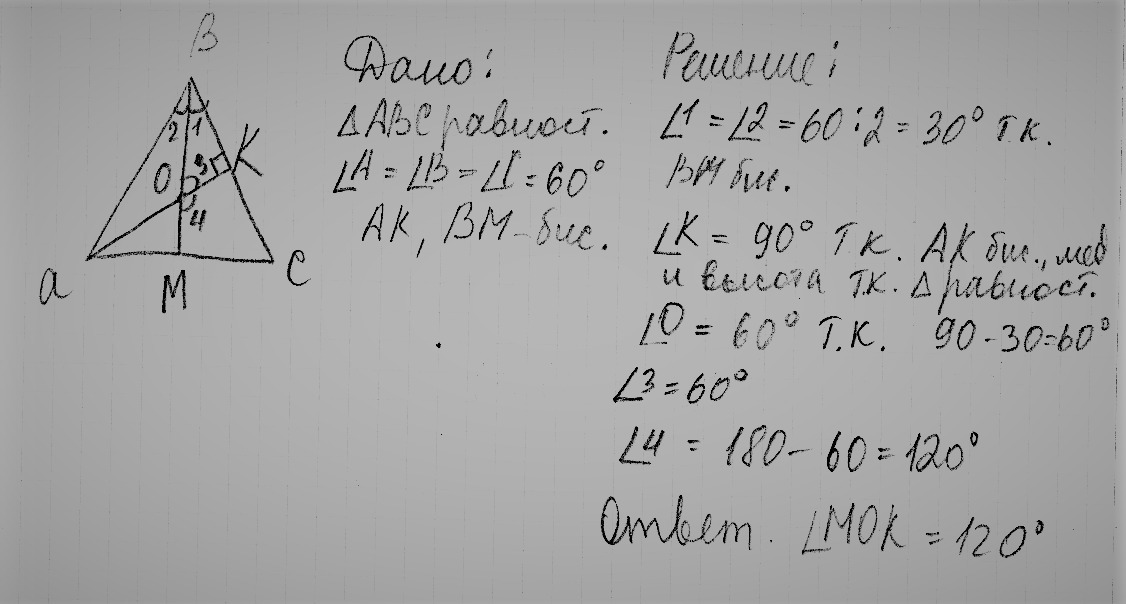 B
2 1
O 3 K
4
a M C
Дано:
ΔABC равност.
∠A = ∠B = ∠C = 60°
AK, BM - бис.
Решение:
∠1 = ∠2 = 60 : 2 = 30° т.к.
BM бис.
∠K = 90° т.к. AK бис., мед
и высота т.к. Δ равност.
∠O = 60° т.к. 90 - 30 = 60°
∠3 = 60°
∠4 = 180 - 60 = 120°
Ответ. ∠MOK = 120°